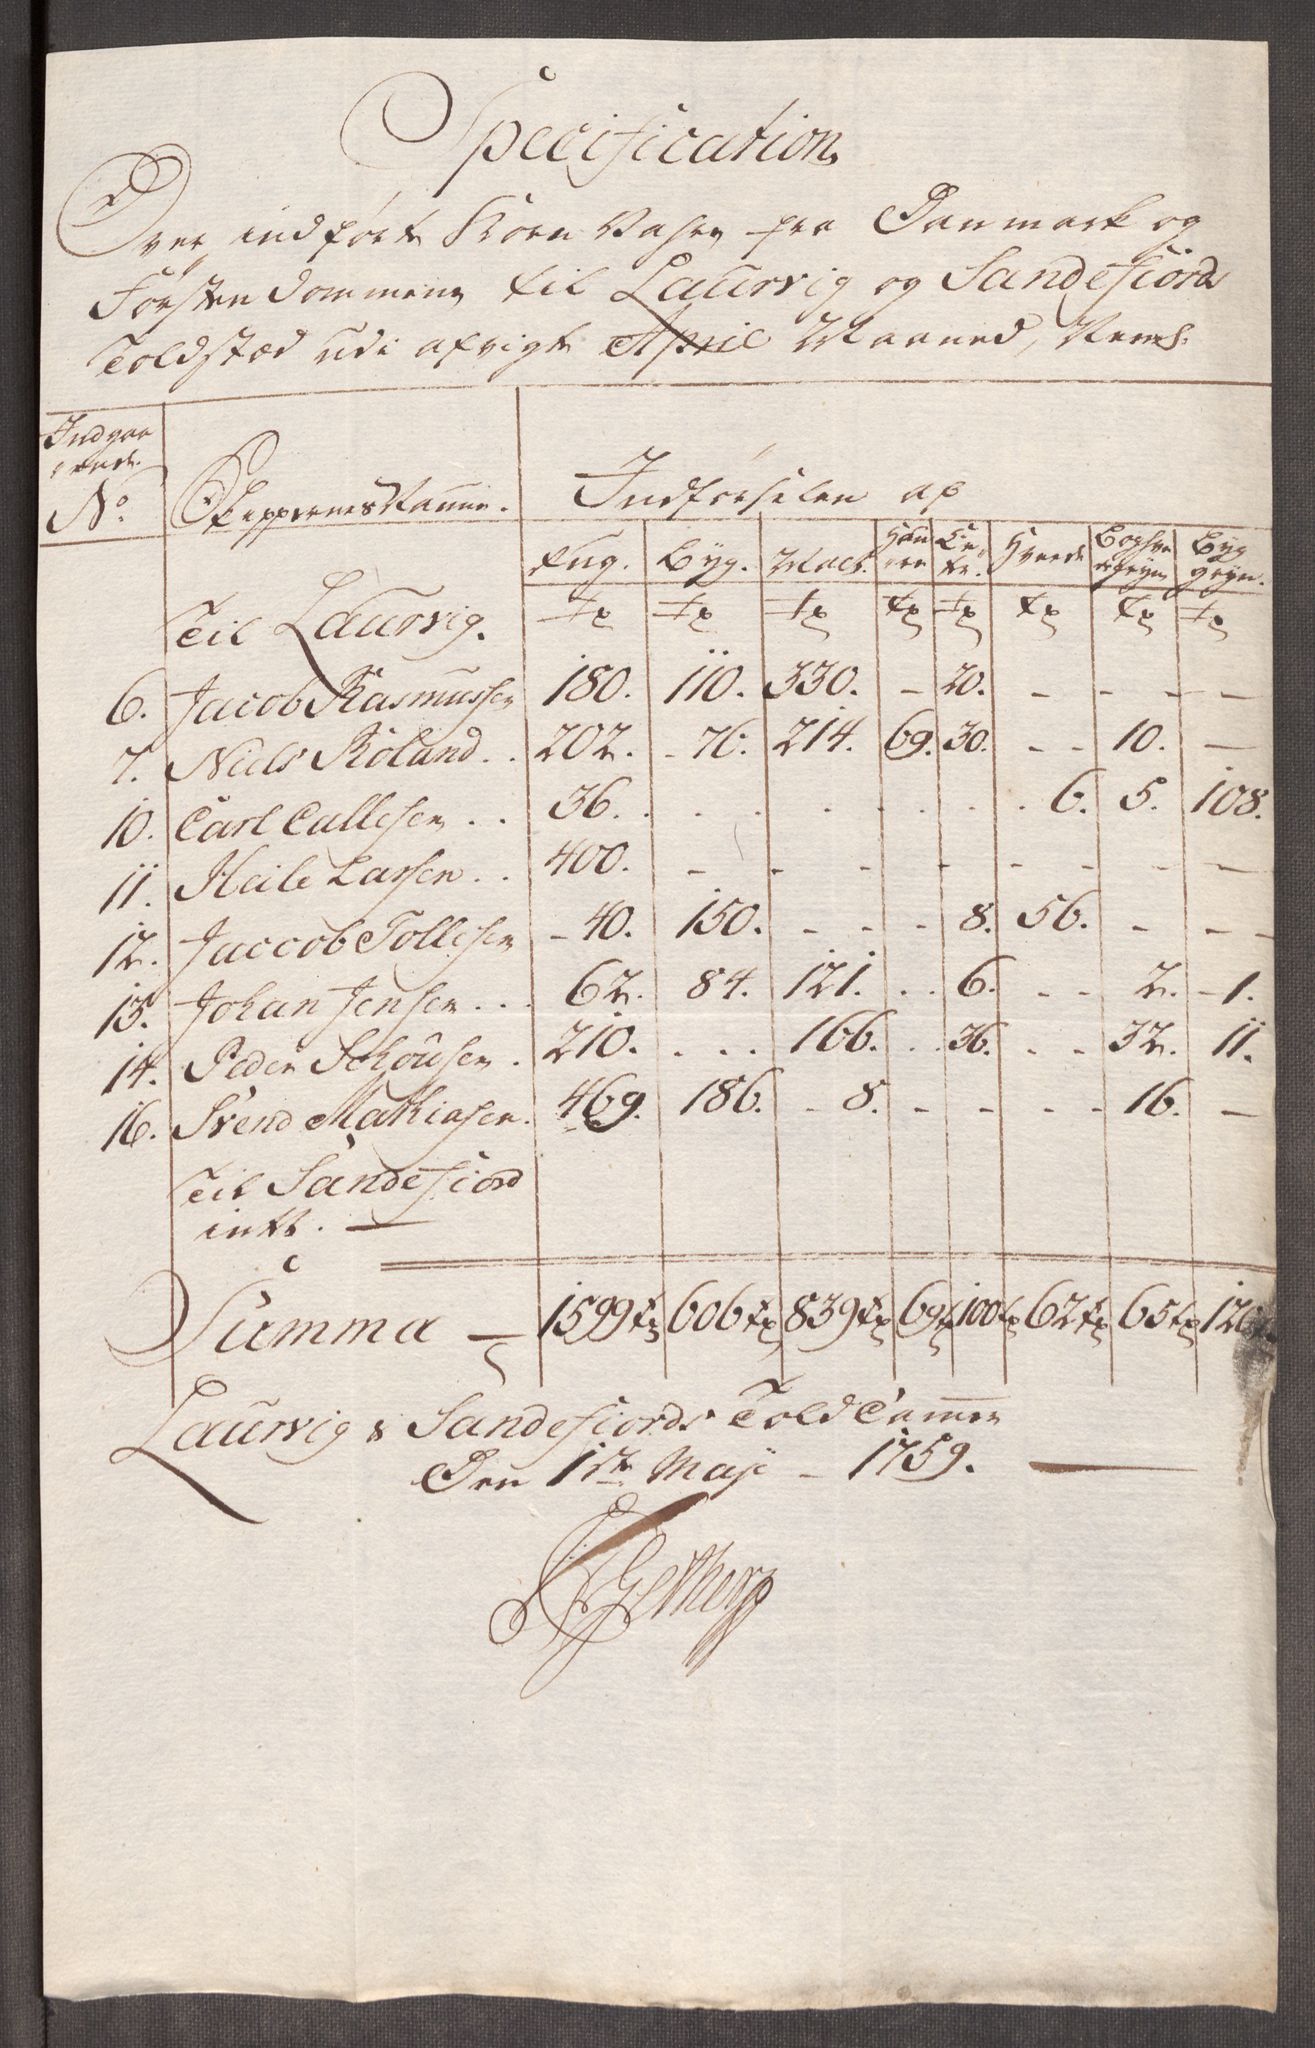 Specification
Over indført Korn Vahre fra Danmark og
Førstendommene til Laurvig og Sandefiords
Toldstæd udi afvigte April Maaned, Neml.
Indgaa
ende
No. Skippernes Nafne. Indførselen af
Rug. Byg. Malt. Hau re Er ter. Hvede Boghve degryn Byg gryn.
Til Laurvig. Tr Tr Tr Tr Tr Tr Tr Tr
6. Jacob Rasmussen 180. 110. 330. - 20. - - - -
7. Niels Roland . . 202. - 76. 214. 69. 30. - - 10. -
10. Carl Callesen . . 36. . . . . . . . 6. 5. 108.
11. Heile Larsen . . 400. - - - - - - - -
12. Jaccob Tollesen - 40. 150. - - - 8. 56. - - -
13. Johan Jensen . . . 62. 84. 121. . . 6. - - 2. - 1.
14. Peder Schousen . 210. . . . 166. . . 36. - - 32. 11.
16. Svend Mathiasen. 469. 186. - 8. - - - - 16. -
Til Sandefiord
intt. —
Summa — 1599 Tr 606 Tr 839 Tr 69 Tr 100 Tr 62 Tr 65 Tr 120 Tr
Laurvig & Sandefiords Told Cammer
Den 1ste Maji - 1759. —